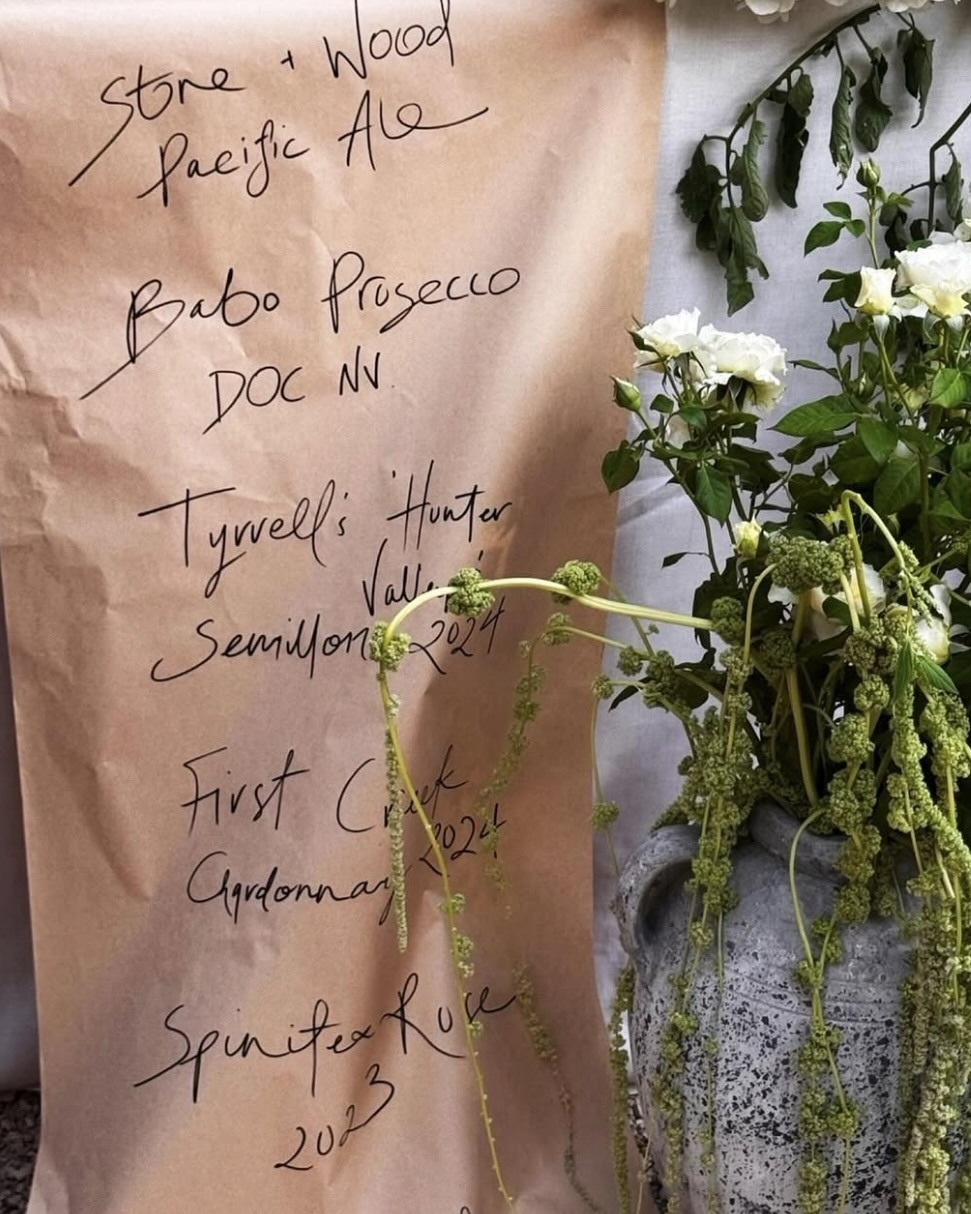 Stone + Wood
Pacific Ale
Babo Prosecco
DOC NV.
Tyrrell's 'Hunter
Valley'
Semillon 2024
First Creek
2024
Chardonnay
Spinifex Rose
2023